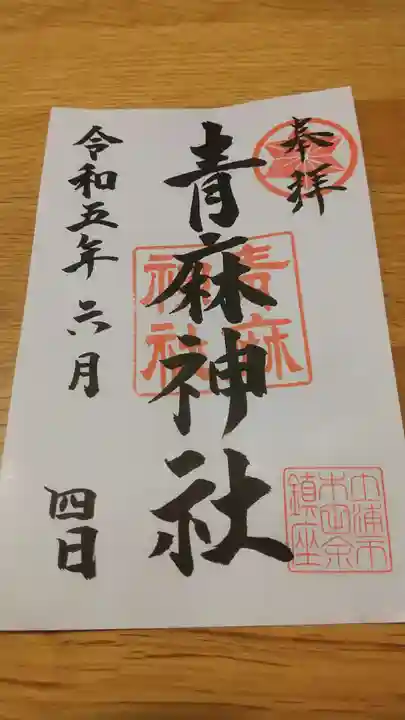 奉拝
青麻神社
令和五年六月四日
青麻
神社
土浦市
木田余
鎮座